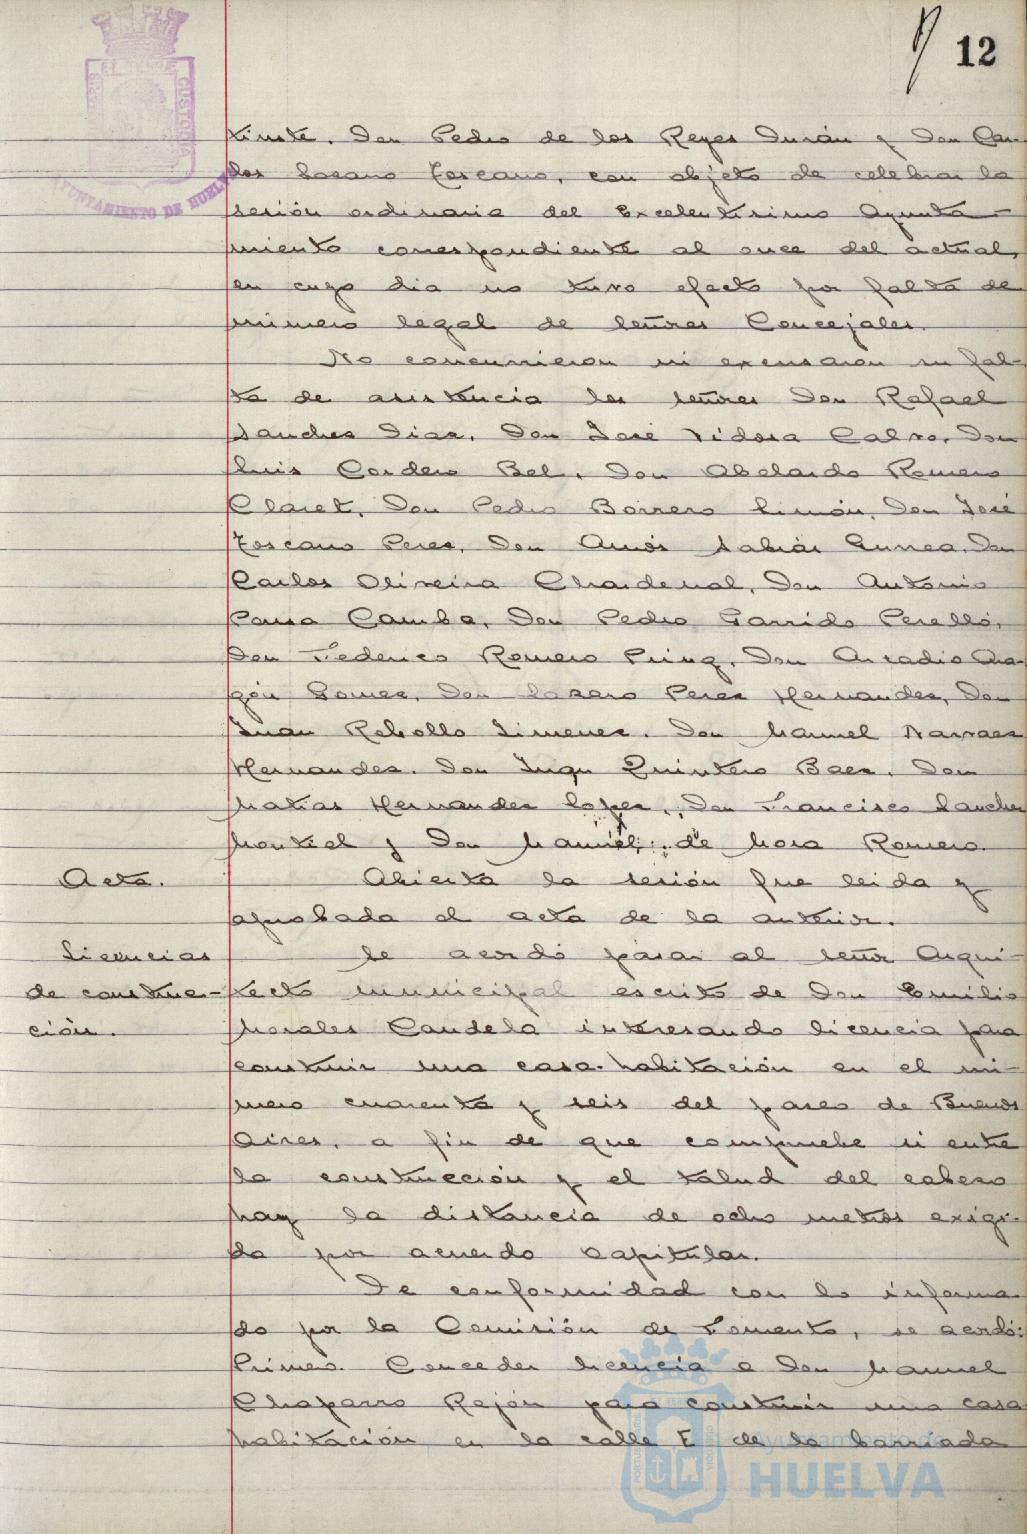 12
tinete. Don Pedro de los Reyes Durán y Don Car-
los Lozano Toscano, con objeto de celebrar la
sesión ordinaria del Excelentísimo Ayunta-
miento correspondiente al once del actual,
en cuyo dia no tuvo efecto por falta de
número legal de señores Concejales.
No concurrieron ni excusaron su fal-
ta de asistencia los señores Don Rafael
Sanchez Diaz, Don José Vidosa Calvo, Don
Luis Cordero Bel, Don Abelardo Romero
Claret, Don Pedro Borrero Limón, Don José
Toscano Perez, Don Amós Sabrás Gurrea, Don
Carlos Oliveira Chardenal, Don Antonio
Pousa Camba, Don Pedro Garrido Perelló,
Don Federico Romero Puig, Don Arcadio Ara-
gón Gomez, Don Lazaro Perez Hernandez, Don
Juan Rebollo Jimenez, Don Manuel Narvaez
Hernandez, Don Juan Quintero Baez, Don
Matias Hernandez Lopez, Don Francisco Sanchez
Montiel y Don Manuel de Mora Romero.
Acta. Abierta la sesión fue leida y
aprobada el acta de la anterior.
Licencias Se acordó pasar al señor Arqui-
de construc- tecto municipal escrito de Don Emilio
ción. Morales Candela interesando licencia para
construir una casa-habitación en el nú-
mero cuarenta y seis del paseo de Buenos
Aires, a fin de que compruebe si entre
la construcción y el talud del cabezo
hay la distancia de ocho metros exigi-
da por acuerdo capitular.
De conformidad con lo informa-
do por la Comisión de Fomento, se acordó:
Primero. Conceder licencia a Don Manuel
Chaparro Rajón para construir una casa
habitación en la calle E de la barriada
AYUNTAMIENTO DE HUELVA
Ayuntamiento de
HUELVA